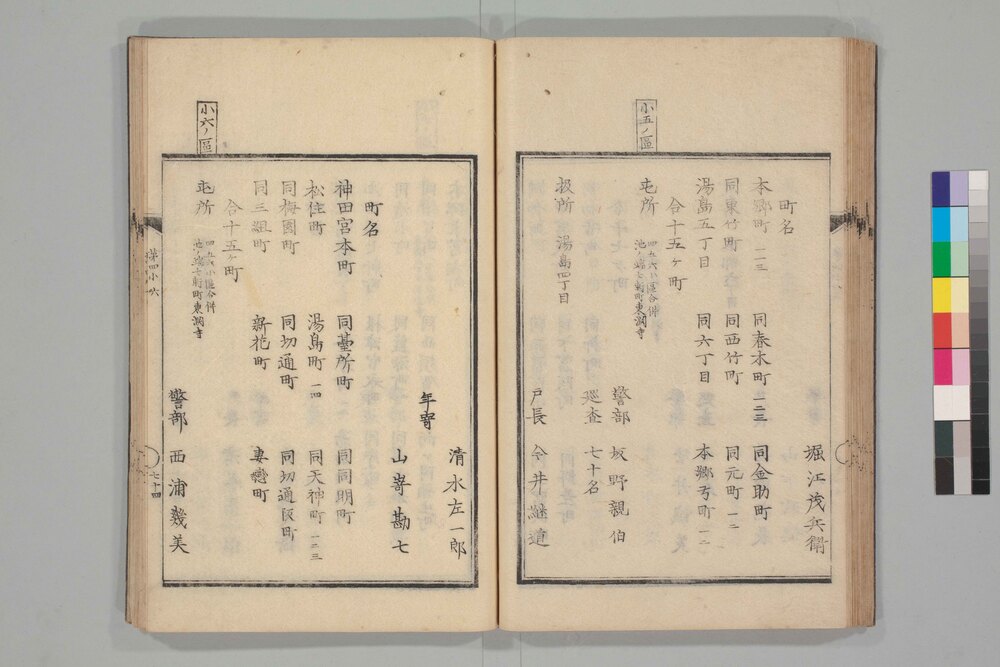 堀江茂兵衞
町名
本郷町 一二三 同春木町 一二三 同金助町
同東竹町 同西竹町 同元町 一二
湯島五丁目 同六丁目 本郷弓町 一二
合十五ヶ町
小五ノ區
屯所 四五六小區合併
池ノ端七軒町東淵寺
警部 坂野親伯
巡査 七十名
扱所 湯島四丁目
戸長 今井継道
清水左一郎
年寄
山嵜勘七
町名
神田宮本町 同䑓所町 同同朋町
松住町 湯島町 一四 同天神町 一二三
同梅園町 同切通町 同切通坂町
同三組町 新花町 妻戀町
合十五ヶ町
小六ノ區
屯所 四五六小區合併
池ノ端七軒町東淵寺
警部 西浦幾美
第四小六
七十四